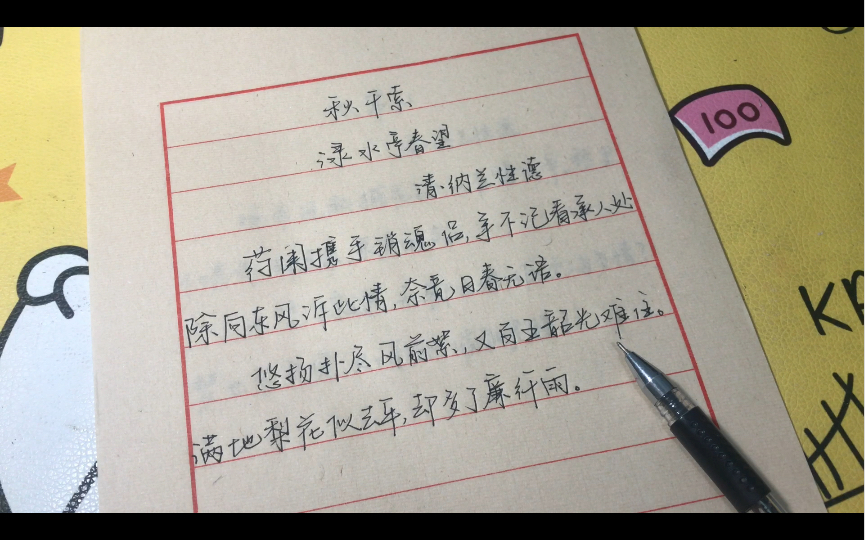 秋千索
渌水亭春望
清·纳兰性德
药阑携手销魂侣,争不记看承人处
除向东风诉此情,奈竟日春无语。
悠扬扑尽风前絮,又百五韶光难住。
满地梨花似去年,却多了廉纤雨。
100